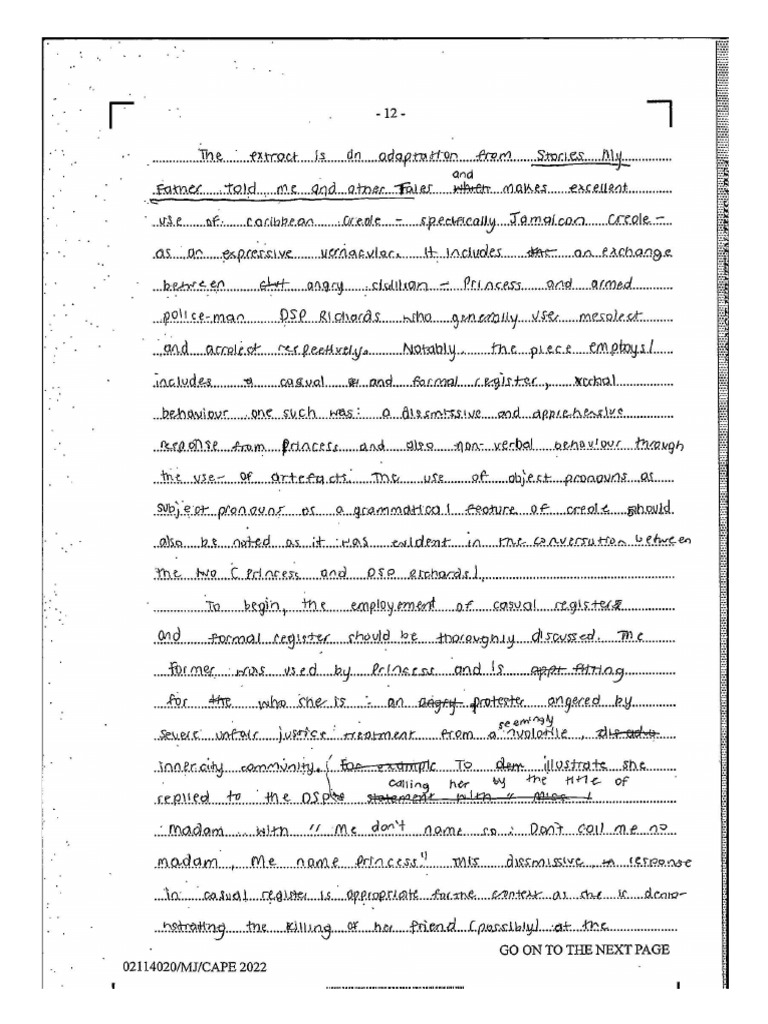 - 12 -
The extract is an adaptation from Stories My
Father told me and other Tales and makes excellent
use of caribbean creole - specifically Jamaican creole -
as an expressive vernacular. It includes an exchange
between angry civilian - Princess and armed
police-man DSP Richards who generally use mesolect
and acrolect respectively. Notably, the piece employs/
includes casual and formal register, verbal
behaviour one such was: a dismissive and apprehensive
response from Princess and also non-verbal behaviour through
the use of artefacts. The use of object pronouns as
subject pronouns as a grammatical feature of creole should
also be noted as it was evident in the conversation between
the two (Princess and DSP Richards).
To begin, the employement of casual registers
and formal register should be thoroughly discussed. The
former was used by Princess and is fitting
for who she is : an protester angered by
severe unfair justice treatment from a seemingly volatile,
innercity community. To illustrate she
replied to the DSP calling her by the title of
madam with " Me don't name so: Don't call me no
madam, Me name Princess" This dismissive response
in casual register is appropriate for the context as she is demo-
nstrating the killing of her friend (possibly) at the
GO ON TO THE NEXT PAGE
02114020/MJ/CAPE 2022